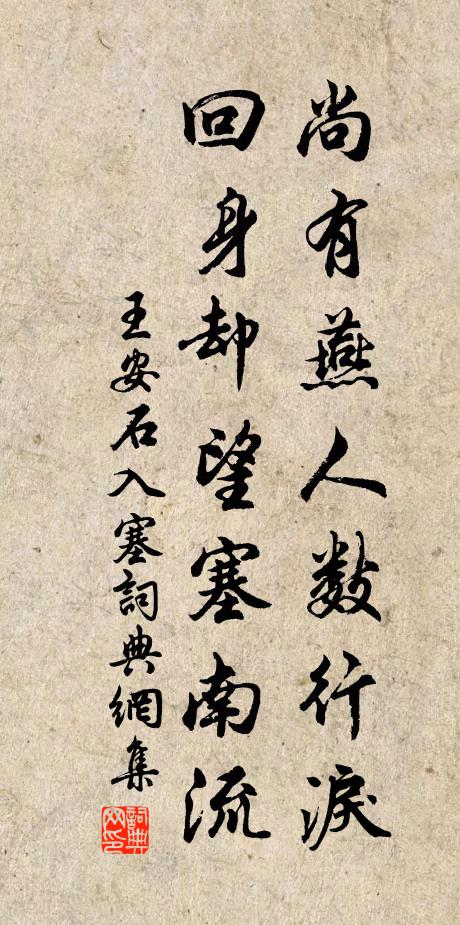 尚有燕人數行淚
回身却望塞南流
王安石入塞詞典網集
詞典网印